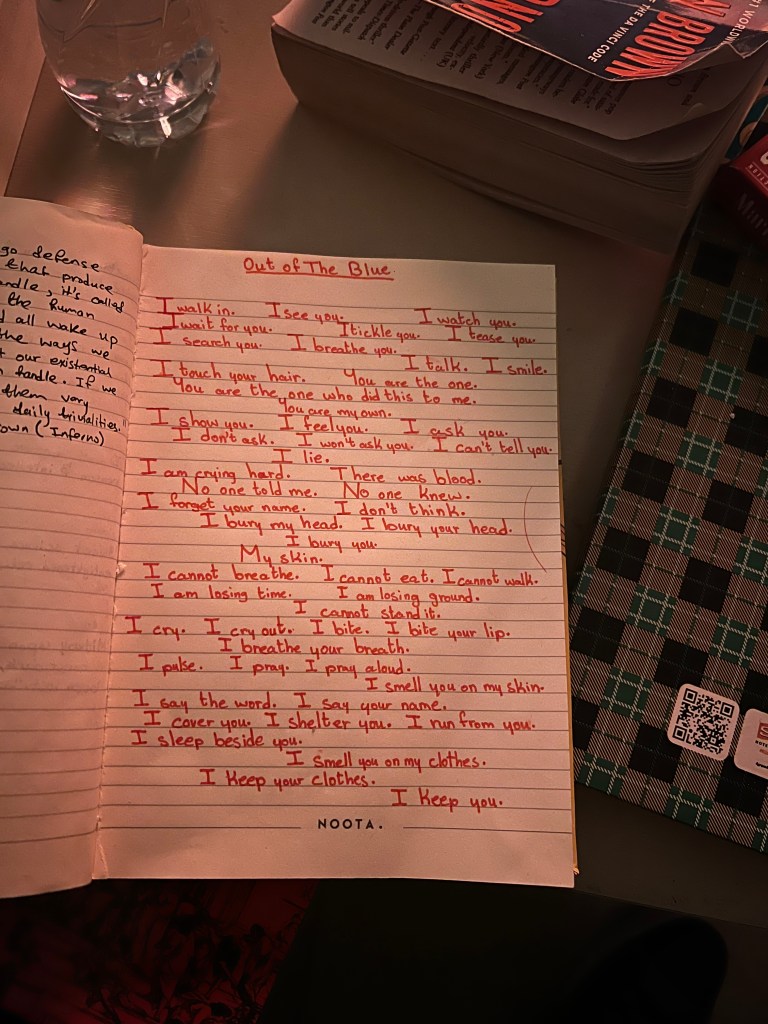 NO
N BROWN
#1 WORLDW
THE DA VINCI CODE
go defense
that produce
andle, it's called
the human
d all wake up
the ways we
t our existential
n handle. If we
them very
daily trivialities."
own (Inferno)
Out of The Blue.
I walk in. I see you. I watch you.
I wait for you. I tickle you. I tease you.
I search you. I breathe you.
I talk. I smile.
I touch your hair. You are the one.
You are the one who did this to me.
You are my own.
I show you. I feel you. I ask you.
I don't ask. I won't ask you. I can't tell you.
I lie.
I am crying hard. There was blood.
No one told me. No one knew.
I forget your name. I don't think.
I bury my head. I bury your head.
I bury you.
My skin.
I cannot breathe. I cannot eat. I cannot walk.
I am losing time. I am losing ground.
I cannot stand it.
I cry. I cry out. I bite. I bite your lip.
I breathe your breath.
I pulse. I pray. I pray aloud.
I smell you on my skin.
I say the word. I say your name.
I cover you. I shelter you. I run from you.
I sleep beside you.
I smell you on my clothes.
I keep your clothes.
I keep you.
NOOTA.